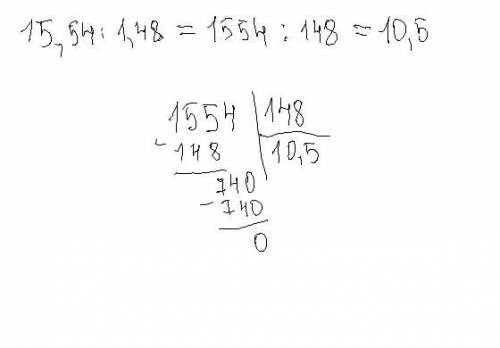 15,54 : 1,48 = 1554 : 148 = 10,5
1554 148
- 148 10,5
740
- 740
0